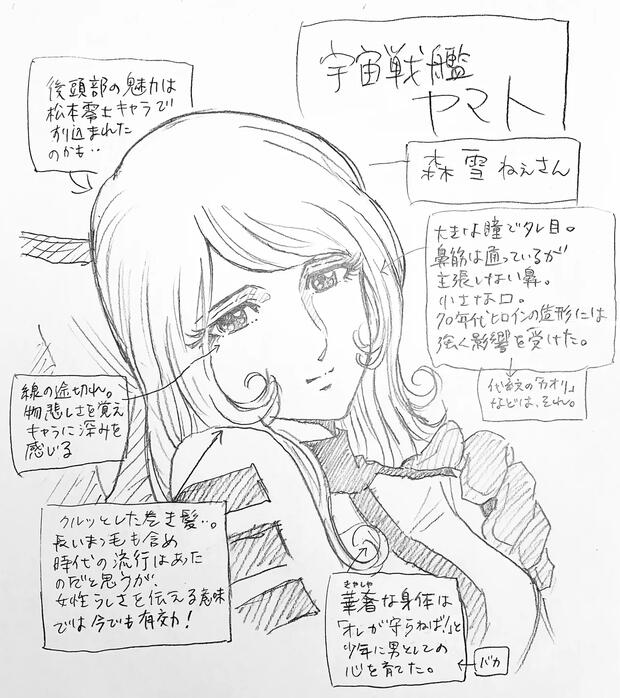 宇宙戦艦
ヤマト
森 雪 ねぇさん
後頭部の魅力は
松本零士キャラで
すり込まれた
のかも・・
大きな瞳でタレ目。
鼻筋は通っているが
主張しない鼻。
小さな口。
70年代ヒロインの造形には
強く影響を受けた。
などは、それ。
線の途切れ。
物悲しさを覚え
キャラに深みを
感じる
クルッとした巻き髪・・。
長いまつ毛も含め
時代の流行はあた
のだと思うが、
女性らしさを伝える意味
では今でも有効!
きゃしゃ
華奢な身体は
「オレが守らねば!」と
少年に男としての
心を育てた。
バカ